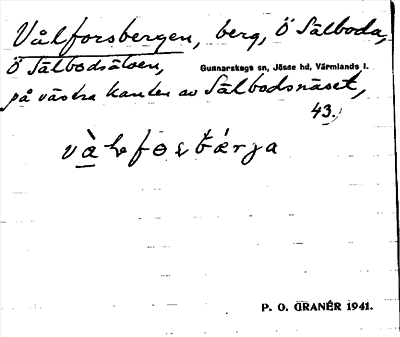 Vålforsbergen, berg, Ö Sälboda,
Ö Sälbodsälven,
Gunnarskogs sn, Jösse hd, Värmlands l.
på västra kanten av Sälbodsnäset,
43.
P. O. GRANÉR 1941.